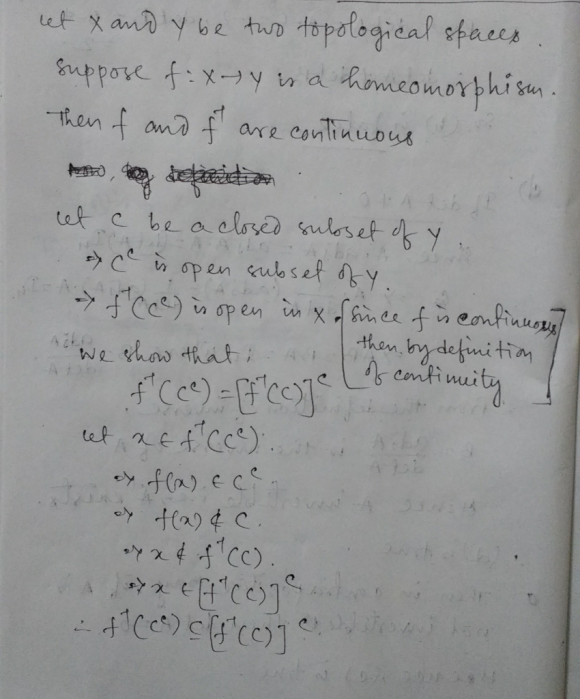 let X and Y be two topological spaces.
suppose f : X → Y is a homeomorphism.
Then f and f⁻¹ are continuous
let C be a closed subset of Y.
⇒ Cᶜ is open subset of Y.
⇒ f⁻¹(Cᶜ) is open in X. [since f is continuous
then by definition
of continuity]
we show that:
f⁻¹(Cᶜ) = [f⁻¹(C)]ᶜ
let x ∈ f⁻¹(Cᶜ).
⇒ f(x) ∈ Cᶜ
⇒ f(x) ∉ C.
⇒ x ∉ f⁻¹(C).
⇒ x ∈ [f⁻¹(C)]ᶜ
∴ f⁻¹(Cᶜ) ⊆ [f⁻¹(C)]ᶜ.